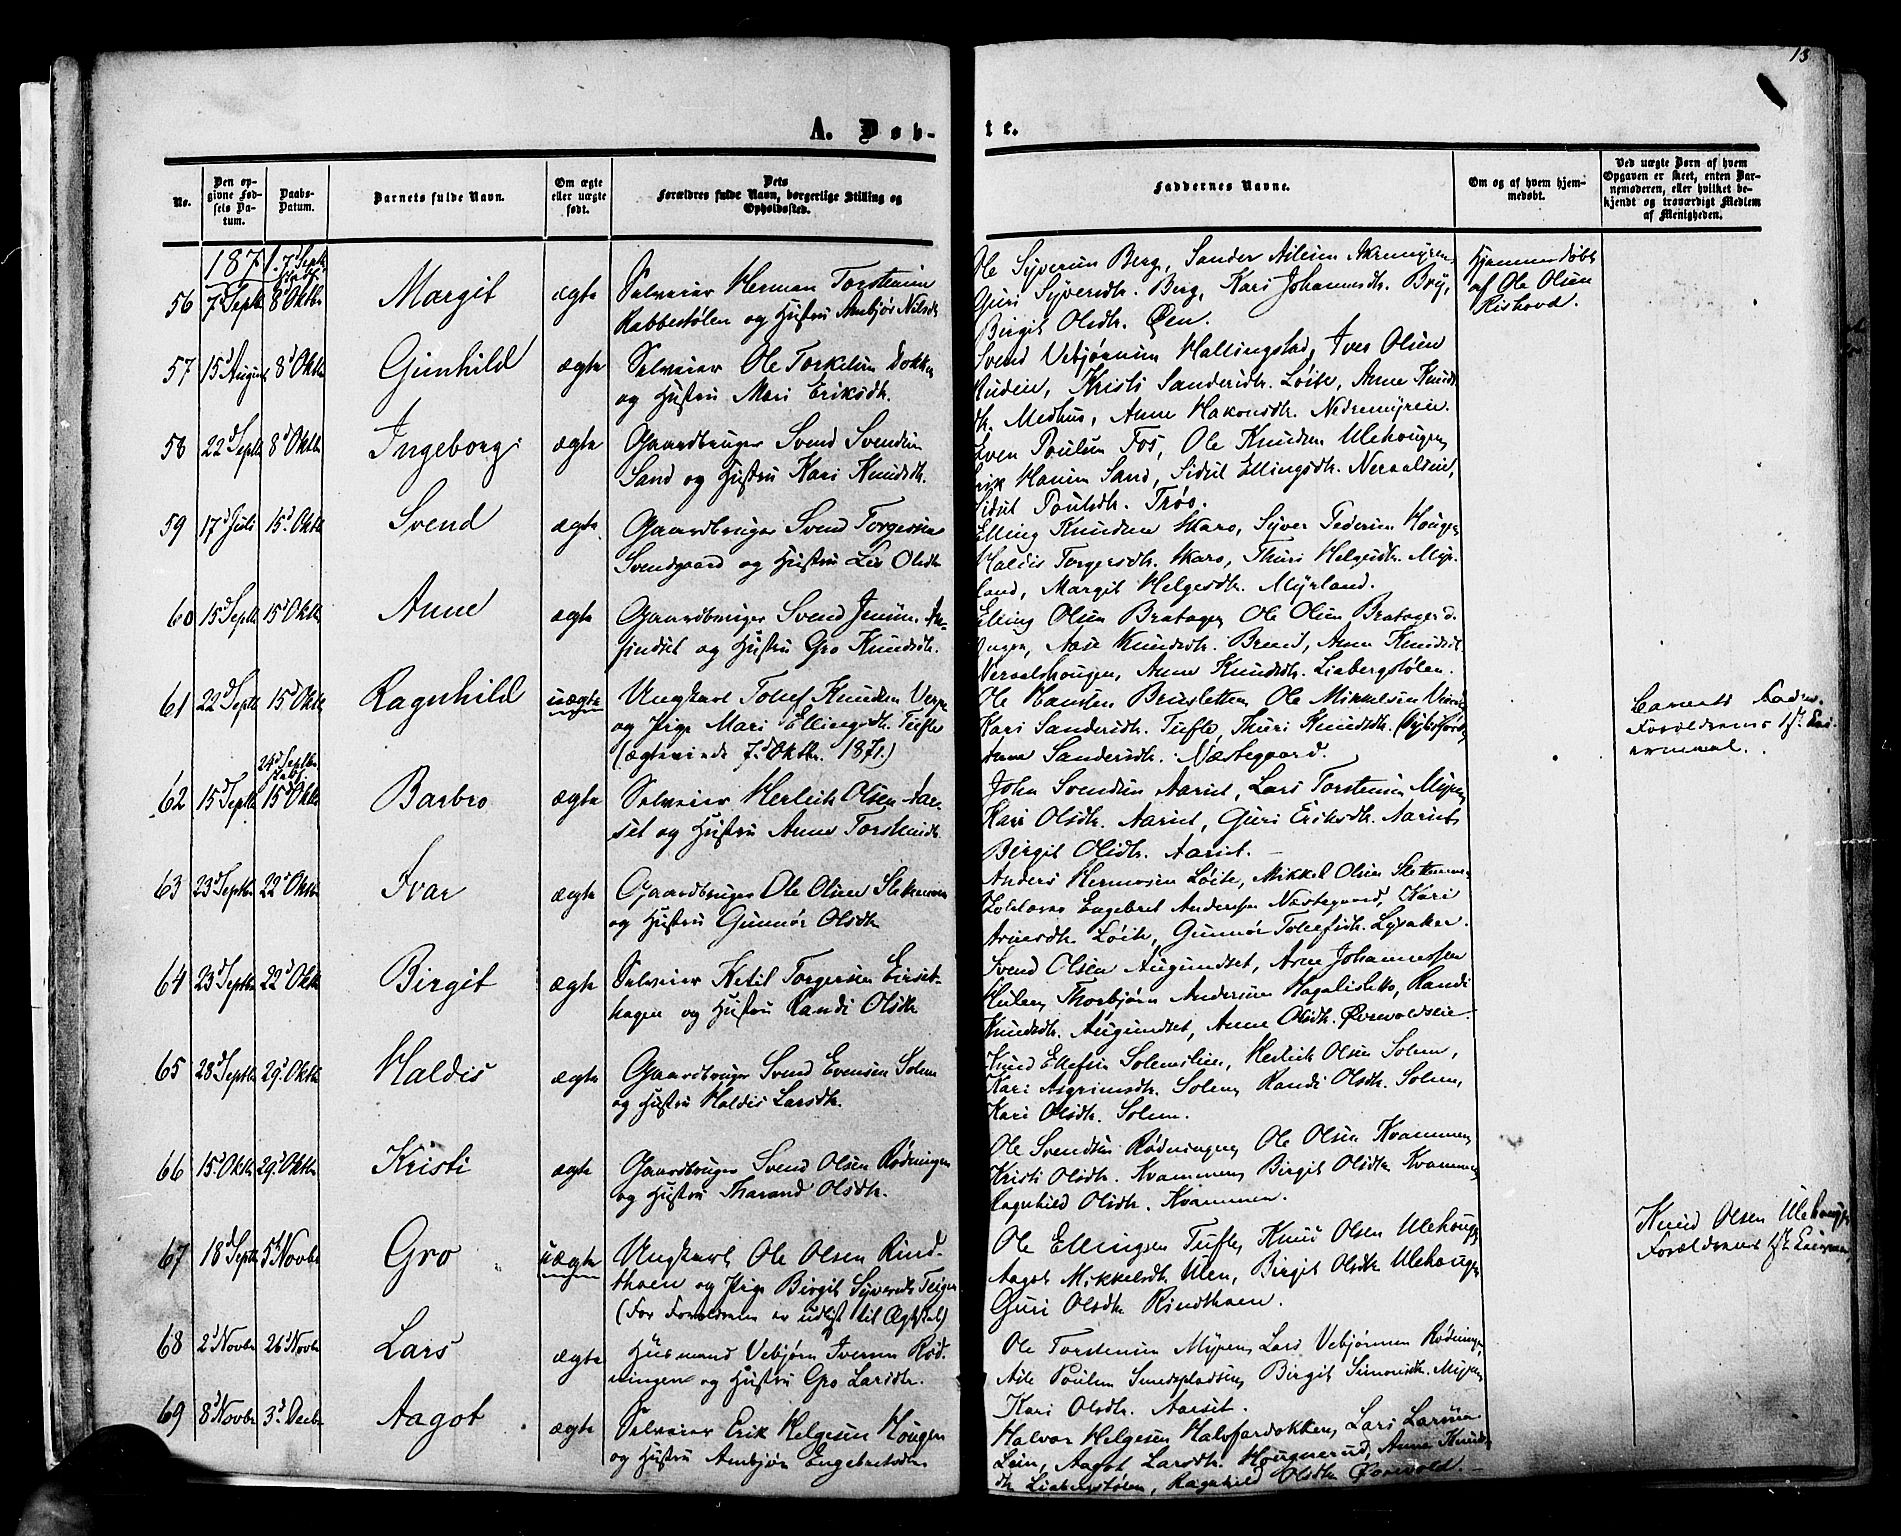 13
A. Døb-
te.
No.
Den opgivne Fødsels Datum.
Daabs-Datum.
Barnets fulde Navn.
Om ægte eller uægte født.
Dets Forældres fulde Navn, borgerlige Stilling og Opholdssted.
Faddernes Navne.
Om og af hvem hjemmedøbt.
Ved uægte Børn af hvem Opgaven er skeet, enten Barnemoderen, eller hvilket bekjendt og troværdigt Medlem af Menigheden.
1871.
7d Septb
56 7d Septb 8d Oktbr Margit ægte Selveier Herman Torstensen
Rabbestølen og Hustru Ambjør Nilsdr.
Ole Syversen Berg, Sander
Guri Syversdtr. Berg, Kari Johannesdtr. Bry,
Birgit Olsdtr. Øen.
Hjemmedøbt
af Ole Olsen
Riskovd.
57 15d August 8d Oktbr Gunhild ægte Selveier Ole Torkelsen Dokken
og Hustru Mari Eriksdtr.
Svend Vebjørnsen Hallingstad, Iver Olsen
Ruden, Kristi Sandersdtr. Løite, Anne Knuds-
dtr. Medhus, Anne Hakonsdtr. Nedremyren.
58 22d Septb 8d Oktbr Ingeborg ægte Gaardbruger Svend Svendsen
Sand og Hustru Kari Knudsdtr.
Even Poulsen Fos, Ole Knudsen Ulehougen
Erik Hansen Sand, Sidsel Ellingsdtr. Neraalseie,
Sidsel Poulsdtr. Trøo.
59 17d Juli 15d Oktbr Svend ægte Gaardbruger Svend Torgersen
Svendgaard og Hustru Liv Olsdtr.
Elling Knudsen Skaro, Syver Pedersen Hougen
Haldis Torgersdtr. Skaro, Thuri Helgesdtr. Myr-
land, Margit Helgesdtr. Myrland.
60 15d Septb 15d Oktbr Anne ægte Gaardbruger Svend Jensen
og Hustru Gro Knudsdtr.
Elling Olsen Bratager, Ole Olsen Bratager
Aase Knudsdtr. Anne Knudsdtr.
Neraalhougen, Anne Knudsdtr. Liabergstølen.
61 22d Septb 15d Oktbr Ragnhild uægte Ungkarl Tollef Knudsen
og Pige Mari Ellingsdtr. Tufte
(ægteviede 7d Oktbr. 1871.)
Ole Hansen Brusletten, Ole Mikkelsen
Kari Sandersdtr. Tufte, Thuri Knudsdtr.
Anne Sandersdtr. Næstegaard.
Barnets Fader.
Forældrenes 1ste Leiermaal.
24d Septbr
62 15d Septb 15d Oktbr Barbro ægte Selveier Herleik Olsen Aar-
set og Hustru Anne Torstensdtr.
John Svendsen Aarset, Lars Torstensen Myren
Kari Olsdtr. Aarset, Guri Eriksdtr. Aarset
Birgit Olsdtr. Aarset.
63 23d Septbr 22d Oktbr Ivar ægte Gaardbruger Ole Olsen
og Hustru Gunnor Olsdtr.
Anders Hermosen Løite, Mikkel Olsen
Engebret Andersen Næstegaard, Kari
Arnesdtr. Løite, Gunnor Tollefsdtr. Lysaker.
64 23d Septbr 22d Oktbr Birgit ægte Selveier Ketil Torgersen Eirset-
hagen og Hustru Randi Olsdtr.
Svend Olsen Augundset, Arne Johannessen
Hulen, Thorbjørn Andersen Randi
Knudsdtr. Augundset, Anne Olsdtr. Øvrevoldseie.
65 28d Septbr 29d Oktbr Haldis ægte Gaardbruger Svend Evensen Solem
og Hustru Haldis Larsdtr.
Knud Ellefsen Herleik Olsen Solem,
Kari Asgrimsdtr. Solem, Randi Olsdtr. Solem,
Kari Olsdtr. Solem.
66 15d Oktbr 29d Oktbr Kristi ægte Gaardbruger Svend Olsen Rødningen
og Hustru Tharand Olsdtr.
Ole Svendsen Rødningen, Ole Olsen Kvammen,
Kristi Olsdtr. Kvammen, Birgit Olsdtr. Kvammen,
Ragnhild Olsdtr. Kvammen.
67 18d Septb 5d Novbr Gro uægte Ungkarl Ole Olsen Rind-
thoen og Pige Birgit Syversdtr. Teigen
(For Forældrene er udlyst til Ægteskab)
Ole Ellingsen Tufte, Knud Olsen Ulehougen
Aagot Mikkelsdtr. Ulen, Birgit Olsdtr. Ulehougen
Guri Olsdtr. Rindthoen.
Knud Olsen Ulehougen
Forældrenes 1ste Leiermaal
68 2d Novbr 26d Novbr Lars ægte Husmand Vebjørn Iversen Rød-
ningen og Hustru Gro Larsdtr.
Ole Torstensen Myren, Lars Vebjørnsen Rødningen,
Poulsen Birgit Simonsdtr. Myren
Kari Olsdtr. Aarset.
69 8d Novbr 3d Decbr Aagot ægte Selveier Erik Helgesen Hougen
og Hustru Ambjør Engebretsdtr.
Halvor Helgesen Halvfardokken, Lars Larsen
Lein, Aagot Larsdtr. Hougnerud, Anne Knuds-
dtr. Liabergstølen, Ragnhild Olsdtr. Ørevold.